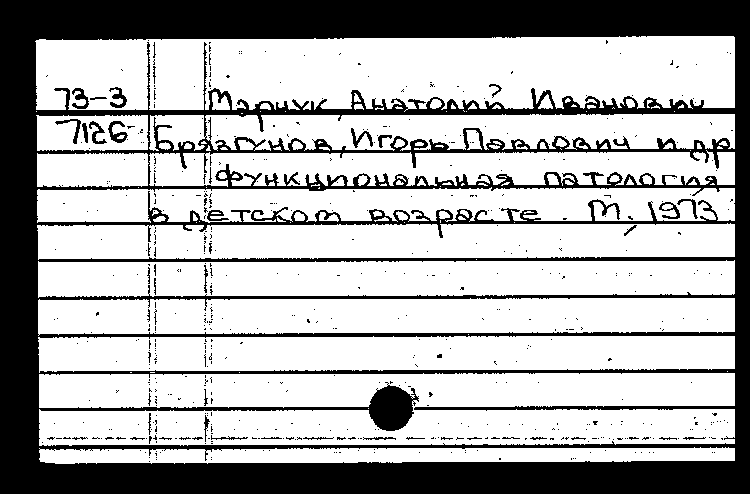 73-3 Марчук, Анатолий Иванович
7126 Брязгунов, Игорь Павлович и др
Функциональная патология
в детском возрасте. М., 1973